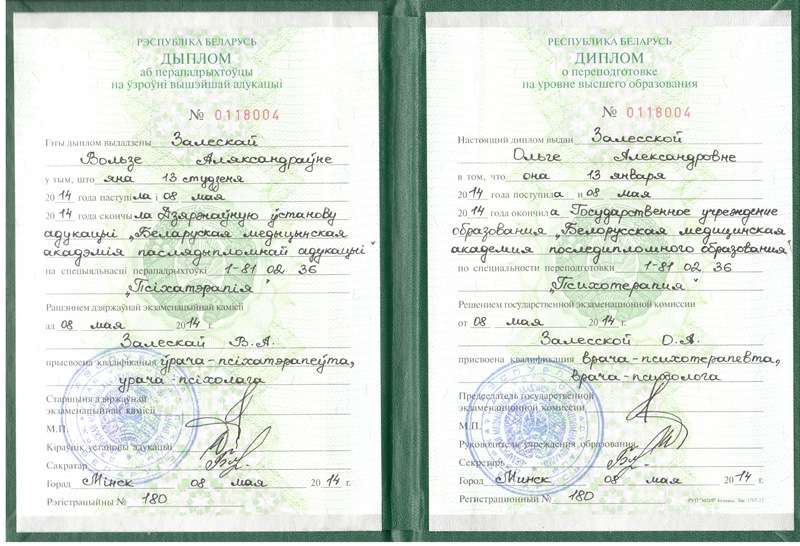 РЭСПУБЛІКА БЕЛАРУСЬ
ДЫПЛОМ
аб перападрыхтоўцы
на ўзроўні вышэйшай адукацыі
№ 0118004
Гэты дыплом выдадзены Залескай
Вользе Аляксандраўне
у тым, што яна 13 студзеня
2014 года паступіла і 08 мая
2014 года скончыла Дзяржаўную ўстанову
адукацыі „Беларуская медыцынская
акадэмія паслядыпломнай адукацыі"
па спецыяльнасці перападрыхтоўкі 1-81 02 36
„Псіхатэрапія"
Рашэннем дзяржаўнай экзаменацыйнай камісіі
ад 08 мая 2014 г.
Залескай В.А.
прысвоена кваліфікацыя ўрача-псіхатэрапеўта,
урача-псіхолага
Старшыня дзяржаўнай
экзаменацыйнай камісіі
М.П.
Кіраўнік установы адукацыі
Сакратар
Горад Мінск 08 мая 2014 г.
Рэгістрацыйны № 180
РЕСПУБЛИКА БЕЛАРУСЬ
ДИПЛОМ
о переподготовке
на уровне высшего образования
№ 0118004
Настоящий диплом выдан Залесской
Ольге Александровне
в том, что она 13 января
2014 года поступила и 08 мая
2014 года окончила Государственное учреждение
образования „Белорусская медицинская
академия последипломного образования"
по специальности переподготовки 1-81 02 36
„Психотерапия"
Решением государственной экзаменационной комиссии
от 08 мая 2014 г.
Залесской О.А.
присвоена квалификация врача-психотерапевта,
врача-психолога
Председатель государственной
экзаменационной комиссии
М.П.
Руководитель учреждения образования
Секретарь
Город Минск 08 мая 2014 г.
Регистрационный № 180